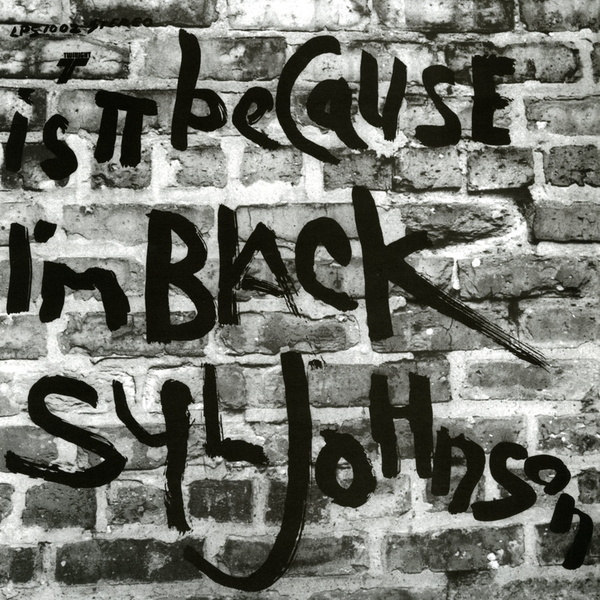 LPS1002 STEREO
is it because
i'm Black
SYL JoHnson